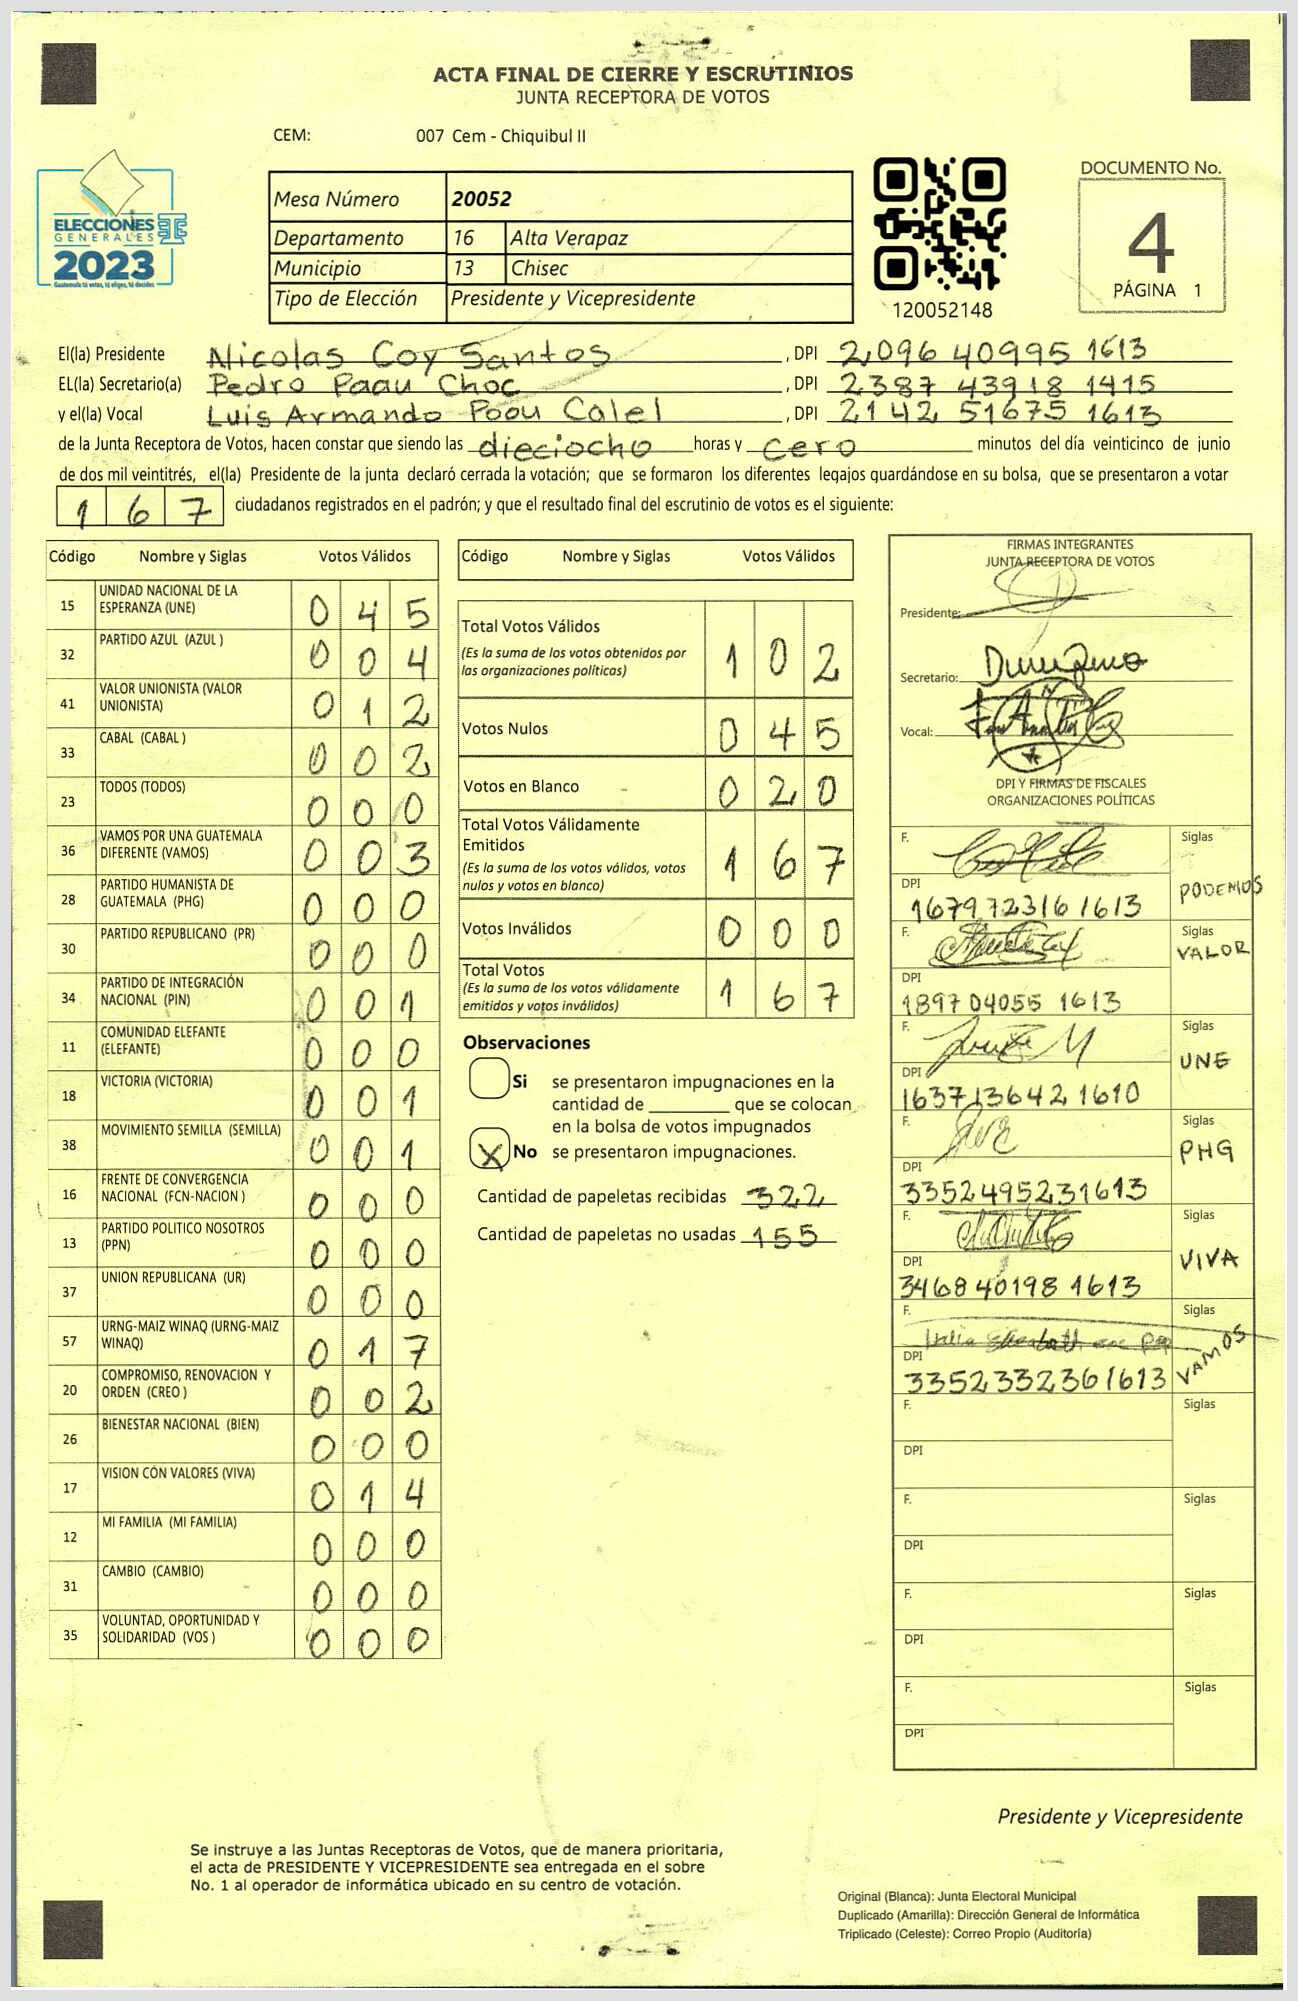 ACTA FINAL DE CIERRE Y ESCRUTINIOS
JUNTA RECEPTORA DE VOTOS
CEM: 007 Cem - Chiquibul II
ELECCIONES
GENERALES
2023
Guatemala tú votas, tú eliges, tú decides
Mesa Número 20052
Departamento 16 Alta Verapaz
Municipio 13 Chisec
Tipo de Elección Presidente y Vicepresidente
120052148
DOCUMENTO No.
4
PÁGINA 1
El(la) Presidente Nicolas Coy Santos, DPI 2096 40995 1613
EL(la) Secretario(a) Pedro Paau Choc, DPI 2387 43918 1415
y el(la) Vocal Luis Armando Poou Calel, DPI 2142 51675 1613
de la Junta Receptora de Votos, hacen constar que siendo las dieciocho horas y cero minutos del día veinticinco de junio
de dos mil veintitrés, el(la) Presidente de la junta declaró cerrada la votación; que se formaron los diferentes legajos guardándose en su bolsa, que se presentaron a votar
1 6 7 ciudadanos registrados en el padrón; y que el resultado final del escrutinio de votos es el siguiente:
Código Nombre y Siglas Votos Válidos
15 UNIDAD NACIONAL DE LA ESPERANZA (UNE) 0 4 5
32 PARTIDO AZUL (AZUL ) 0 0 4
41 VALOR UNIONISTA (VALOR UNIONISTA) 0 1 2
33 CABAL (CABAL ) 0 0 2
23 TODOS (TODOS) 0 0 0
36 VAMOS POR UNA GUATEMALA DIFERENTE (VAMOS) 0 0 3
28 PARTIDO HUMANISTA DE GUATEMALA (PHG) 0 0 0
30 PARTIDO REPUBLICANO (PR) 0 0 0
34 PARTIDO DE INTEGRACIÓN NACIONAL (PIN) 0 0 1
11 COMUNIDAD ELEFANTE (ELEFANTE) 0 0 0
18 VICTORIA (VICTORIA) 0 0 1
38 MOVIMIENTO SEMILLA (SEMILLA) 0 0 1
16 FRENTE DE CONVERGENCIA NACIONAL (FCN-NACION ) 0 0 0
13 PARTIDO POLITICO NOSOTROS (PPN) 0 0 0
37 UNION REPUBLICANA (UR) 0 0 0
57 URNG-MAIZ WINAQ (URNG-MAIZ WINAQ) 0 1 7
20 COMPROMISO, RENOVACION Y ORDEN (CREO ) 0 0 2
26 BIENESTAR NACIONAL (BIEN) 0 0 0
17 VISION CON VALORES (VIVA) 0 1 4
12 MI FAMILIA (MI FAMILIA) 0 0 0
31 CAMBIO (CAMBIO) 0 0 0
35 VOLUNTAD, OPORTUNIDAD Y SOLIDARIDAD (VOS ) 0 0 0
Código Nombre y Siglas Votos Válidos
Total Votos Válidos 1 0 2
(Es la suma de los votos obtenidos por
las organizaciones políticas)
Votos Nulos 0 4 5
Votos en Blanco 0 2 0
Total Votos Válidamente
Emitidos 1 6 7
(Es la suma de los votos válidos, votos
nulos y votos en blanco)
Votos Inválidos 0 0 0
Total Votos 1 6 7
(Es la suma de los votos válidamente
emitidos y votos inválidos)
Observaciones
Si se presentaron impugnaciones en la
cantidad de ________ que se colocan
en la bolsa de votos impugnados
X No se presentaron impugnaciones.
Cantidad de papeletas recibidas 322
Cantidad de papeletas no usadas 155
FIRMAS INTEGRANTES
JUNTA RECEPTORA DE VOTOS
Presidente:
Secretario:
Vocal:
DPI Y FIRMAS DE FISCALES
ORGANIZACIONES POLÍTICAS
F. Siglas
DPI 1679 72316 1613 PODEMOS
F. Siglas
DPI 1897 04055 1613 VALOR
F. Siglas
DPI 1637 13642 1610 UNE
F. Siglas
DPI 3352495231613 PHG
F. Siglas
DPI 3468 40198 1613 VIVA
F. Siglas
DPI 3352332361613 VAMOS
F. Siglas
DPI
F. Siglas
DPI
F. Siglas
DPI
F. Siglas
DPI
Presidente y Vicepresidente
Se instruye a las Juntas Receptoras de Votos, que de manera prioritaria,
el acta de PRESIDENTE Y VICEPRESIDENTE sea entregada en el sobre
No. 1 al operador de informática ubicado en su centro de votación.
Original (Blanca): Junta Electoral Municipal
Duplicado (Amarilla): Dirección General de Informática
Triplicado (Celeste): Correo Propio (Auditoría)